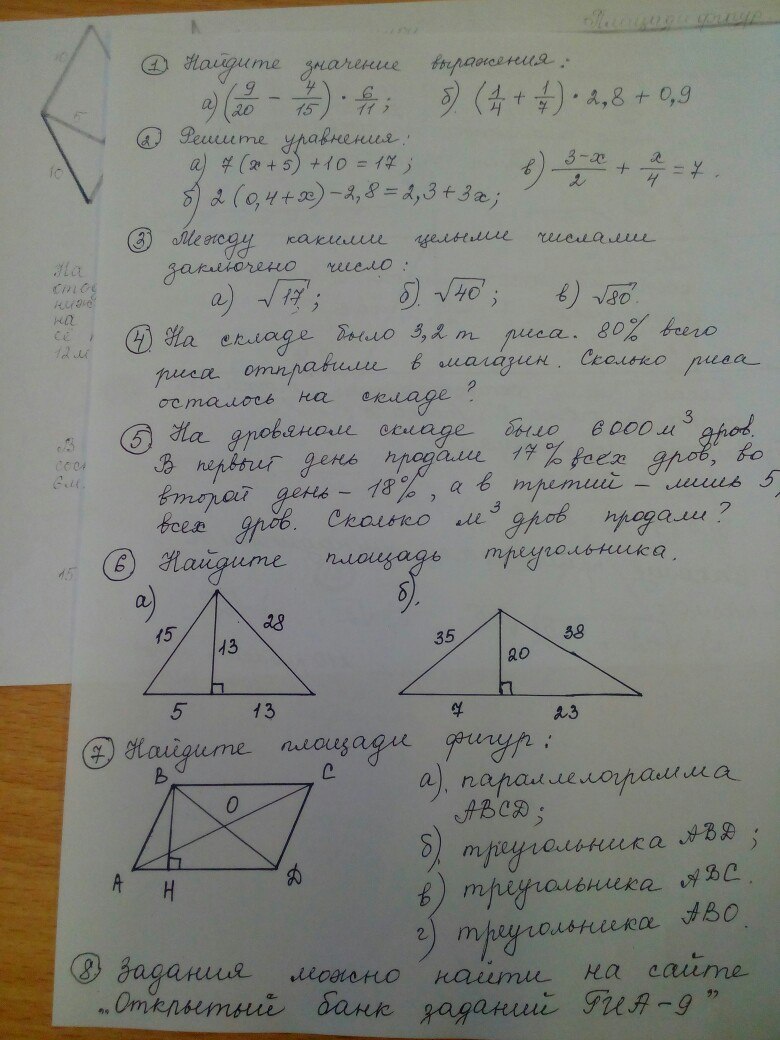 Площади фигур
① Найдите значение выражения:
а) (9/20 − 4/15) · 6/11; б) (1/4 + 1/7) · 2,8 + 0,9
② Решите уравнения:
а) 7(x+5)+10=17; в) (3−x)/2 + x/4 = 7.
б) 2(0,4+x)−2,8=2,3+3x;
③ Между какими целыми числами
заключено число:
а) √17; б) √40; в) √80.
④ На складе было 3,2 т риса. 80% всего
риса отправили в магазин. Сколько риса
осталось на складе?
⑤ На дровяном складе было 6000 м³ дров.
В первый день продали 17% всех дров, во
второй день – 18%, а в третий – лишь 5,
всех дров. Сколько м³ дров продали?
⑥ Найдите площадь треугольника.
а) б).
15 28 13 5 13
35 38 20 7 23
⑦. Найдите площади фигур:
B C O A H D
а). параллелограмма
ABCD;
б). треугольника ABD;
в) треугольника ABC.
г) треугольника ABO.
⑧ Задания можно найти на сайте
„Открытый банк заданий ГИА-9"
10
5
10
На
на
12м
В
6м.
15